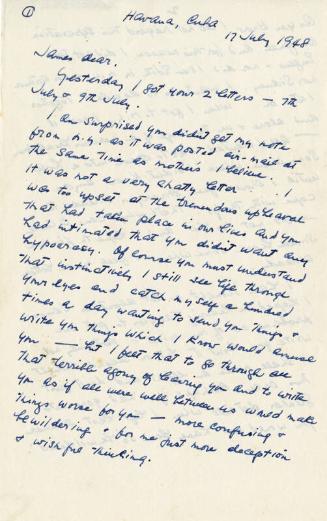 ①
Havana, Cuba
17 July 1948
James dear.
Yesterday I got your 2 letters — the
July & 9th July.
I am surprised you didn't get my note
from N.Y. as it was posted air-mail at
the same time as mothers I believe.
It was not a very chatty letter I
was too upset at the tremendous upheaval
that had taken place in our lives and you
had intimated that you didn't want any
hypocrasy. Of course you must understand
that instinctively I still see life through
your eyes and catch myself a hundred
times a day wanting to send you things &
write you things which I know would amuse
you — but I felt that to go through all
that terrible agony of leaving you and to write
you as if all were well between us would make
things worse for you — more confusing &
bewildering & for me just more deception
& wishful thinking.